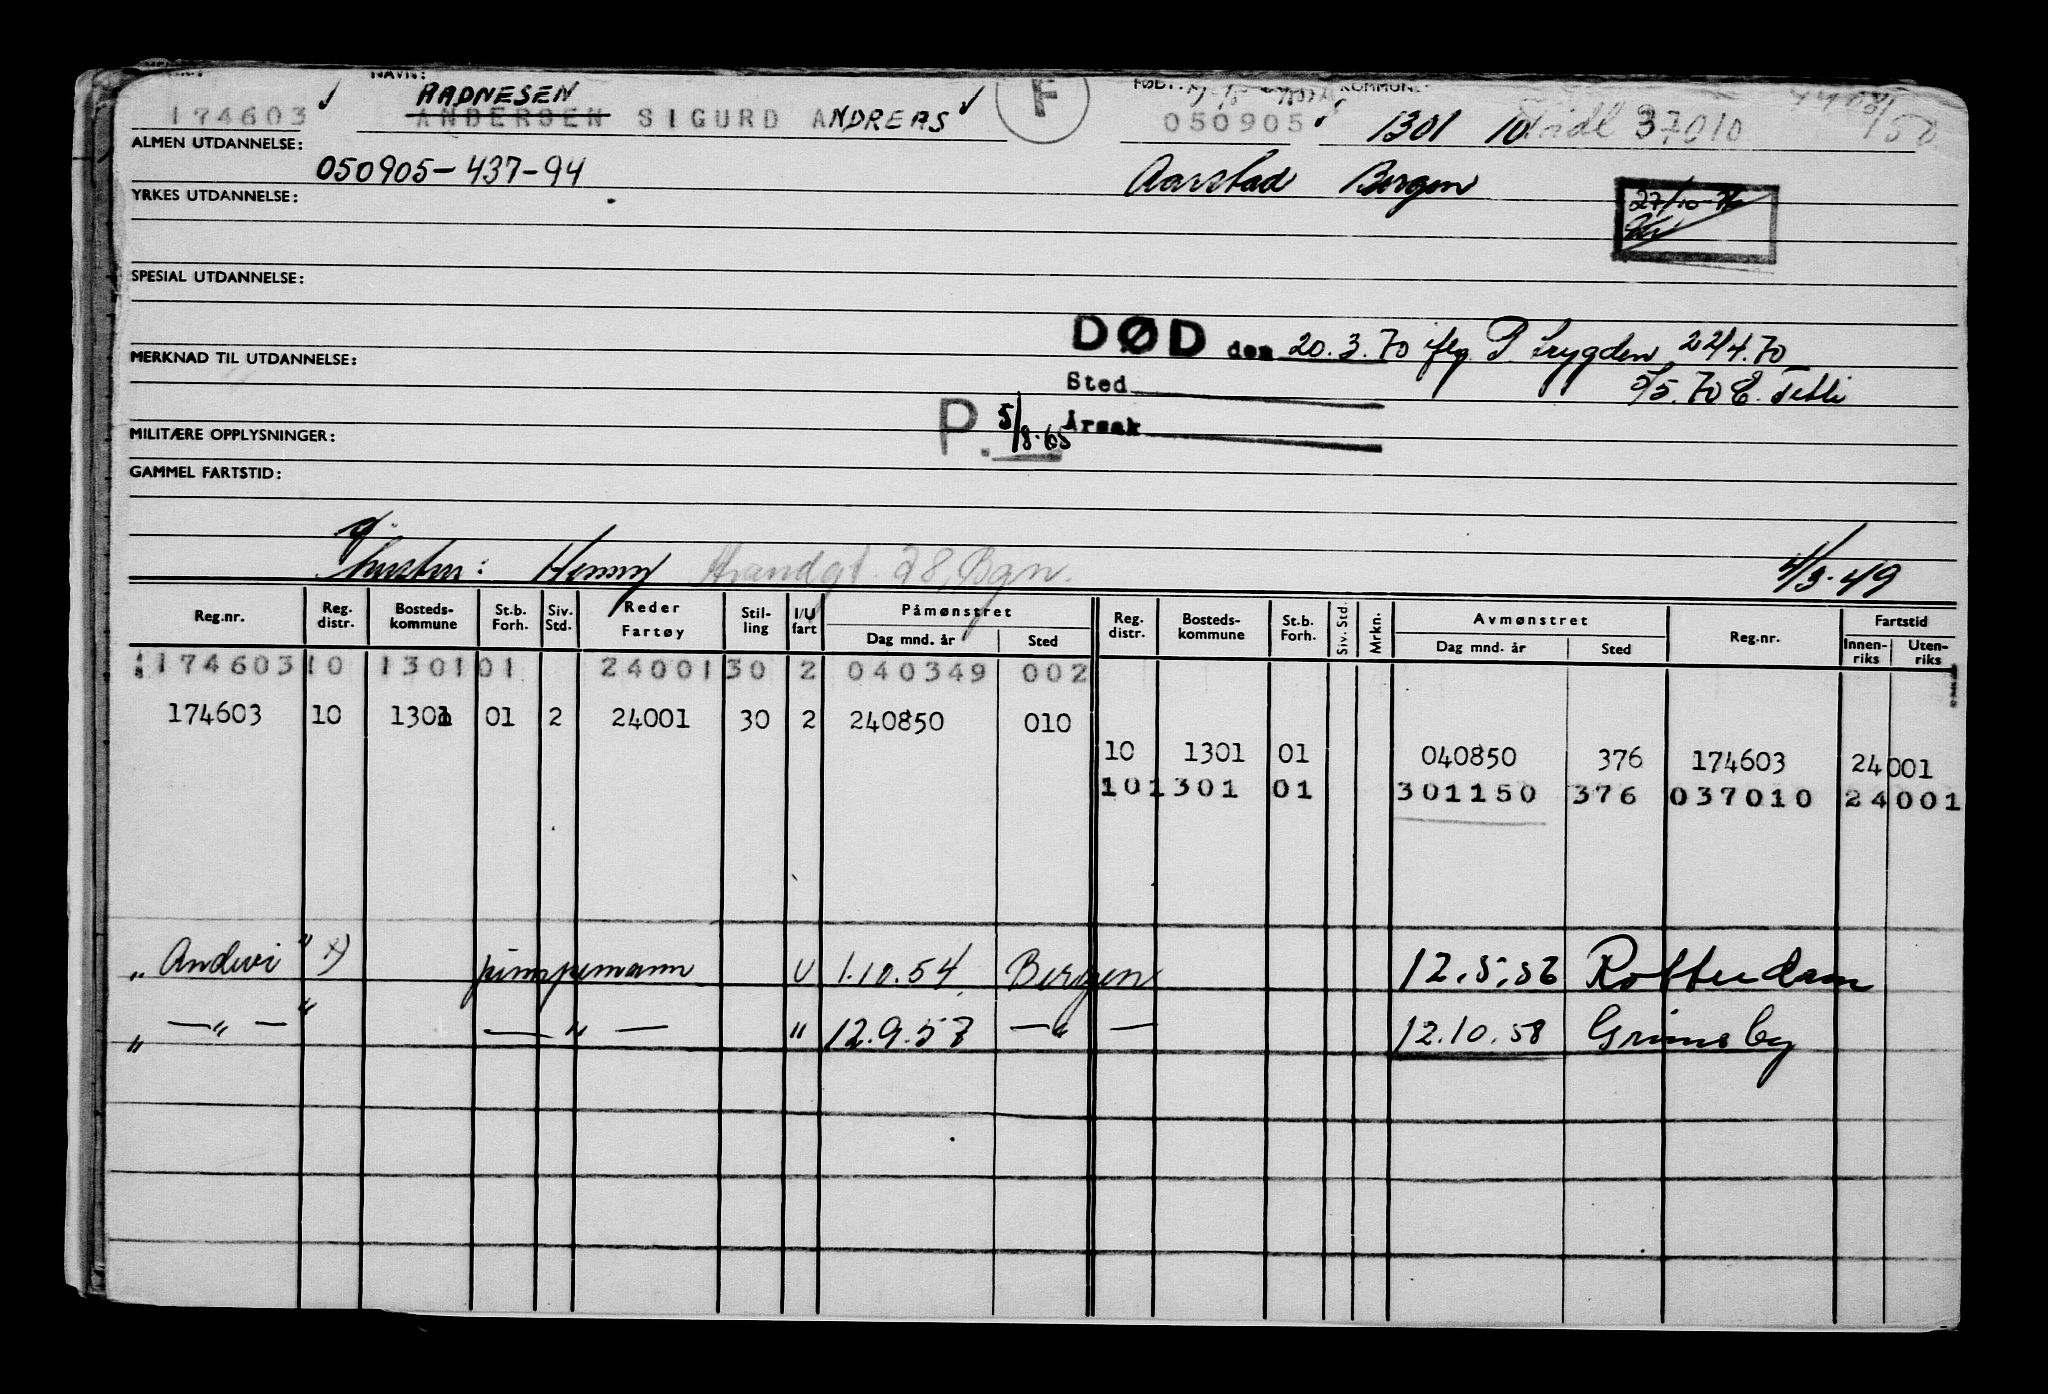 NAVN: FØDT: KOMMUNE:
AADNESEN
174603 ANDERSEN SIGURD ANDREAS F 050905 1301 10 37010
ALMEN UTDANNELSE:
050905-437-94 Aarstad Bergen
YRKES UTDANNELSE: 27/10-
SPESIAL UTDANNELSE:
DØD den 20.3.70 iflg P. trygden 22/4.70
MERKNAD TIL UTDANNELSE:
Sted 5/5.70 E.
P. 5/8.65 Årsak
MILITÆRE OPPLYSNINGER:
GAMMEL FARTSTID:
hustru: Henny Strandgt. 28, Bgn. 4/3-49
Reg.nr. Reg. distr. Bosteds-kommune St.b. Forh. Siv. Std. Reder Fartøy Stil-ling I/U fart Påmønstret Dag mnd. år Sted Reg. distr. Bosteds-kommune St.b. Forh. Siv. Std. Mrkn. Avmønstret Dag mnd. år Sted Reg.nr. Fartstid Innen-riks Uten-riks
174603 10 1301 01 24001 30 2 040349 002
174603 10 1301 01 2 24001 30 2 240850 010
10 1301 01 040850 376 174603 24001
10 1301 01 301150 376 037010 24001
"Andevi" x) pumpemann U 1.10.54 Bergen 12.5.56 Rotterdam
" —"— " —"— " 12.9.57 —"— 12.10.58 Grimsby